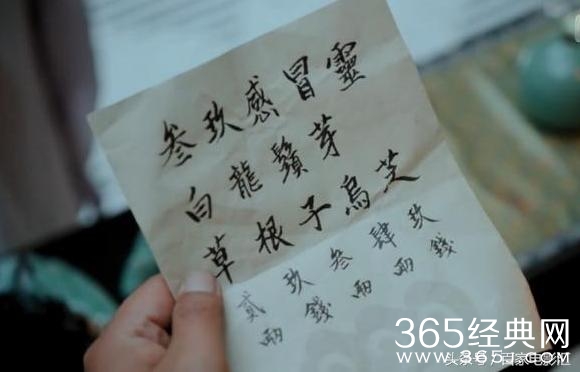 叁玖感冒靈
白龍鬚芽
草根子烏芝
貳玖叁肆玖
兩錢兩兩錢
365经典网
www.365j.com